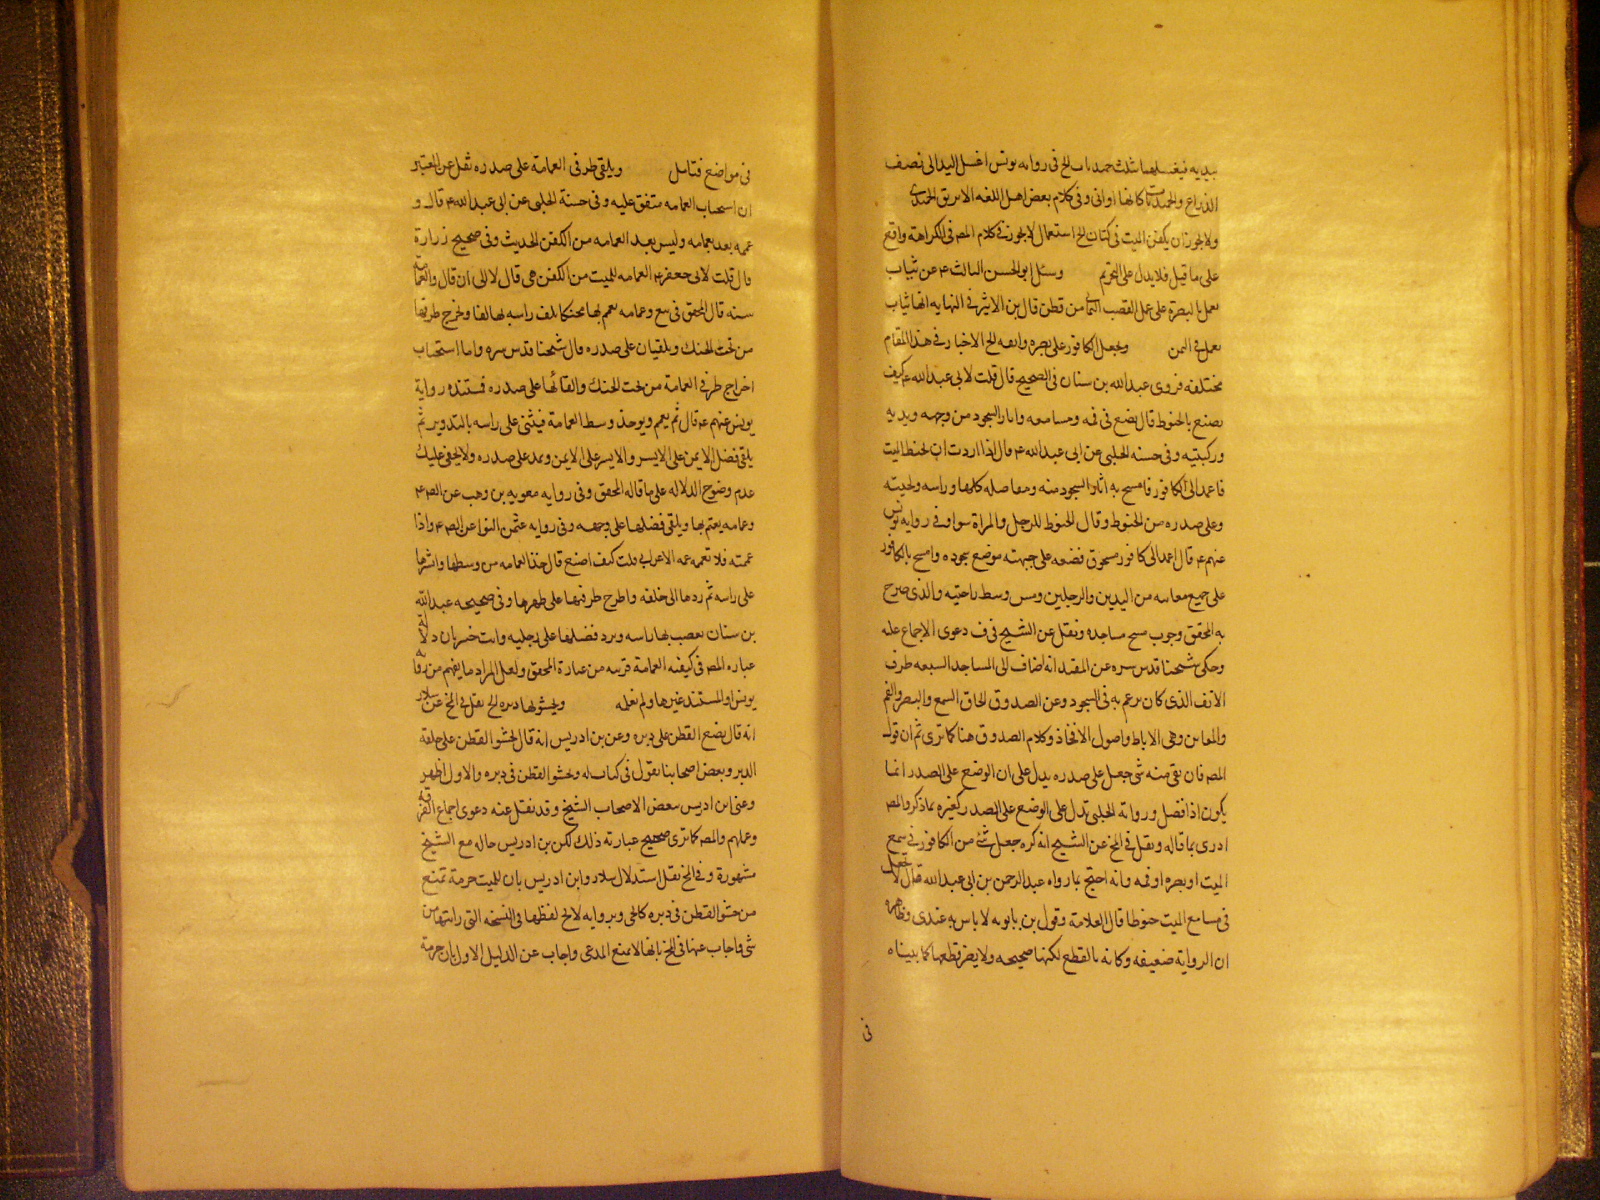 بيديه فيغسلها بثلث حميديات الخ في رواية يونس اغسل اليد الى نصف
الذراع والحميديات كانها اواني وفي كلام بعض اهل اللغه الابريق الحميدي
ولا يجوز ان يكفن الميت في كتان الخ استعمال لا يجوز في كلام المص في الكراهة واقع
على ما قيل فلا يدل على التحريم وسئل ابو الحسن الثالث ع عن ثياب
تعمل بالبصرة على عمل القصب اليماني من قطن قال بن الاثير في النهايه انها ثياب
تعمل في اليمن ويجعل الكافور على بصره وانفه الخ الاخبار في هذا المقام
مختلفه فروى عبدالله بن سنان في الصحيح قال قلت لابي عبدالله ع كيف
نصنع بالحنوط قال تضع في فمه ومسامعه واثار السجود من وجهه ويديه
وركبتيه وفي حسنه الحلبي عن ابي عبدالله ع قال اذا اردت ان تحنط الميت
فاعمد الى الكافور فامسح به اثار السجود منه ومفاصله كلها وراسه ولحيته
وعلى صدره من الحنوط وقال الحنوط للرجل والمراة سوا وفي روايه يونس
عنهم ع قال اعمد الى كافور مسحوق فضعه على جبهته موضع سجوده وامسح بالكافور
على جميع مغابنه من اليدين والرجلين ومن وسط راحتيه والذي صرح
به المحقق وجوب مسح مساجده ونقل عن الشيخ في ف دعوى الاجماع عليه
وحكى شيخنا قدس سره عن المفيد انه اضاف الى المساجد السبعه طرف
الانف الذي كان يرغم به في السجود وعن الصدوق الحاق السمع والبصر والفم
والمغابن وهي الاباط واصول الافخاذ وكلام الصدوق هنا كما ترى ثم ان قول
المص فان بقي منه شي جعل على صدره يدل على ان الوضع على الصدر انما
يكون اذا فضل ورواية الحلبي تدل على الوضع على الصدر كغيره مما ذكر والمص
ادرى بما قاله ونقل في المخ عن الشيخ انه كره جعل شئ من الكافور في سمع
الميت او بصره او فمه وانه احتج بما رواه عبد الرحمن بن ابي عبدالله قال لا تجعل
في مسامع الميت حنوطا قال العلامة وقول بن بابويه لا باس به عندي وظاهره
ان الرواية ضعيفه وكانه بالقطع لكنها صحيحه ولا يضر قطعها كما بيناه
في
في مواضع فتامل ويلقي طرفي العمامة على صدره نقل عن المعتبر
ان استحباب العمامه متفق عليه وفي حسنة الحلبي عن ابي عبدالله ع قال و
عممه بعد بعمامه وليس بعد العمامه من الكفن الحديث وفي صحيح زرارة
قال قلت لابي جعفر ع العمامه للميت من الكفن هي قال لا الى ان قال والعمامة
سنه قال المحقق في يع وعمامه يعمم بها محنكا يلف راسه بها لفا ويخرج طرفاها
من تحت الحنك ويلقيان على صدره قال شيخنا قدس سره واما استحباب
اخراج طرفي العمامة من تحت الحنك والقائها على صدره فمستنده رواية
يونس عنهم ع قال ثم يعمم ويوخذ وسط العمامة فيثنى على راسه بالتدوير ثم
يلقى فضل الايمن على الايسر والايسر على الايمن ويمد على صدره ولا يخفى عليك
عدم وضوح الدلاله على ما قاله المحقق وفي روايه معويه بن وهب عن الص ع
وعمامه يعتم بها ويلقى فضلها على وجهه وفي روايه عثمن النوا عن الص ع واذا
عممته فلا تعممه عمه الاعرابي قلت كيف اصنع قال خذ العمامه من وسطها وانشرها
على راسه ثم ردها الى خلفه واطرح طرفيها على ظهرها وفي صحيحه عبدالله
بن سنان يعصب بها راسه ويرد فضلها على رجليه وانت خبير بان دلالة
عباره المص في كيفيه العمامة قريبه من عبارة المحقق ولعل المراد ما يفهم من رواية
يونس او المستند غيرها ولم نعلمه ويحشو بها دبره الخ نقل في المخ عن سلار
انه قال يضع القطن على دبره وعن بن ادريس انه قال يحشو القطن على حلقة
الدبر وبعض اصحابنا يقول في كتاب له ويحشو القطن في دبره والاول اظهر
وعنى ابن ادريس ببعض الاصحاب الشيخ وقد نقل عنه دعوى اجماع الفرقه
وعملهم والمص كما ترى صحيح عبارته ذلك لكن بن ادريس حاله مع الشيخ
مشهورة وفي المخ نقل استدلال سلار وابن ادريس بان للميت حرمة تمنع
من حشو القطن في دبره كالحي وبروايه لا يح لفظها في النسخه التي رايتها من
شي واجاب عنها في المخ بانها لا تمنع المدعى واجاب عن الدليل الاول بان حرمة